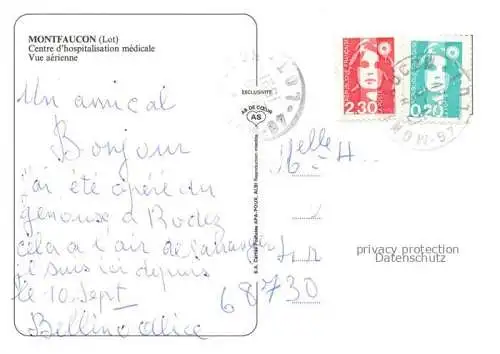 MONTFAUCON (Lot)
Centre d'hospitalisation médicale
Vue aérienne
Un amical
Bonjour
j'ai été opéré du
genoux à Rodez
cela a l'air de s'arranger
je suis ici depuis
le 10 Sept
Bellino Alice
EXCLUSIVITÉ
AS DE CŒUR
AS
S.A. Cartes Postales APA-POUX, ALBI Reproduction interdite
RÉPUBLIQUE FRANÇAISE
2,30
RÉPUBLIQUE FRANÇAISE
0,20
Melle
68730
privacy protection
Datenschutz